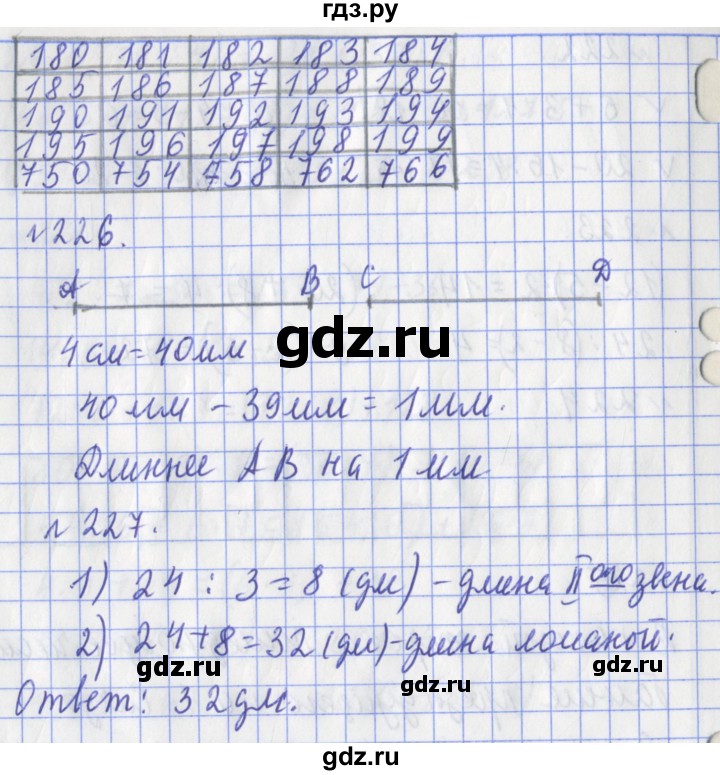 гдз.ру
180 181 182 183 184
185 186 187 188 189
190 191 192 193 194
195 196 197 198 199
750 754 758 762 766
№226.
A B C D
gdz.ru
4 см = 40 мм
40 мм - 39 мм = 1 мм.
Длиннее AB на 1 мм
№227.
1) 24 : 3 = 8 (дм) - длина II ого звена.
2) 24+8=32 (дм)-длина ломаной.
gdz.ru gdz.ru gdz.ru
Ответ: 32 дм.
gdz.ru